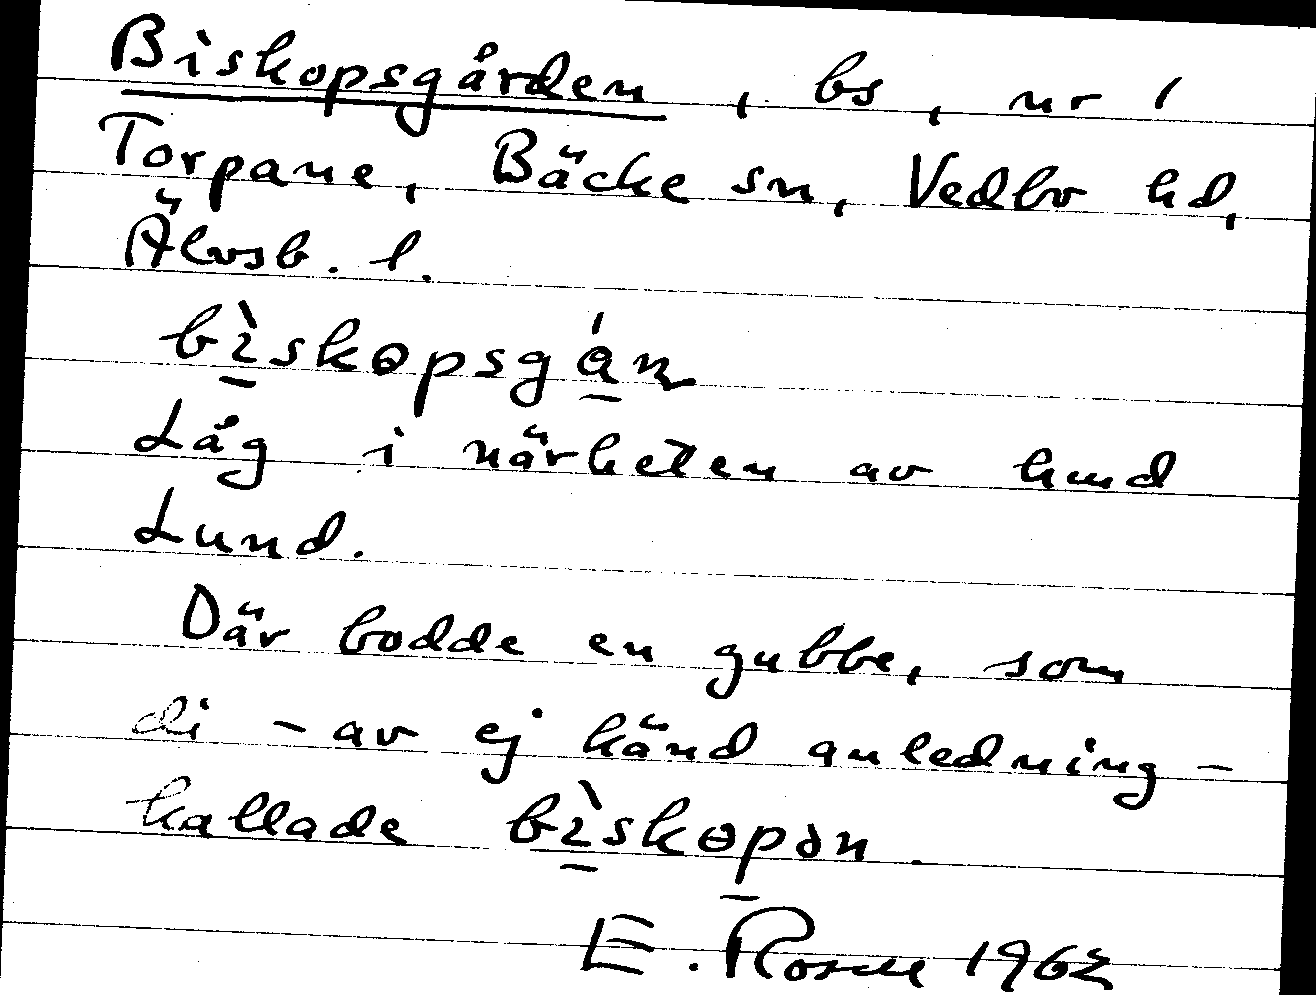 Biskopsgården, bs, nr 1
Torpane, Bäcke sn, Vedbo hd,
Älvsb. l.
bìskɵpsgán
Låg i närheten av hmd
Lund.
Där bodde en gubbe, som
di - av ej känd anledning -
kallade bìskɵpən.
E. Rosell 1962